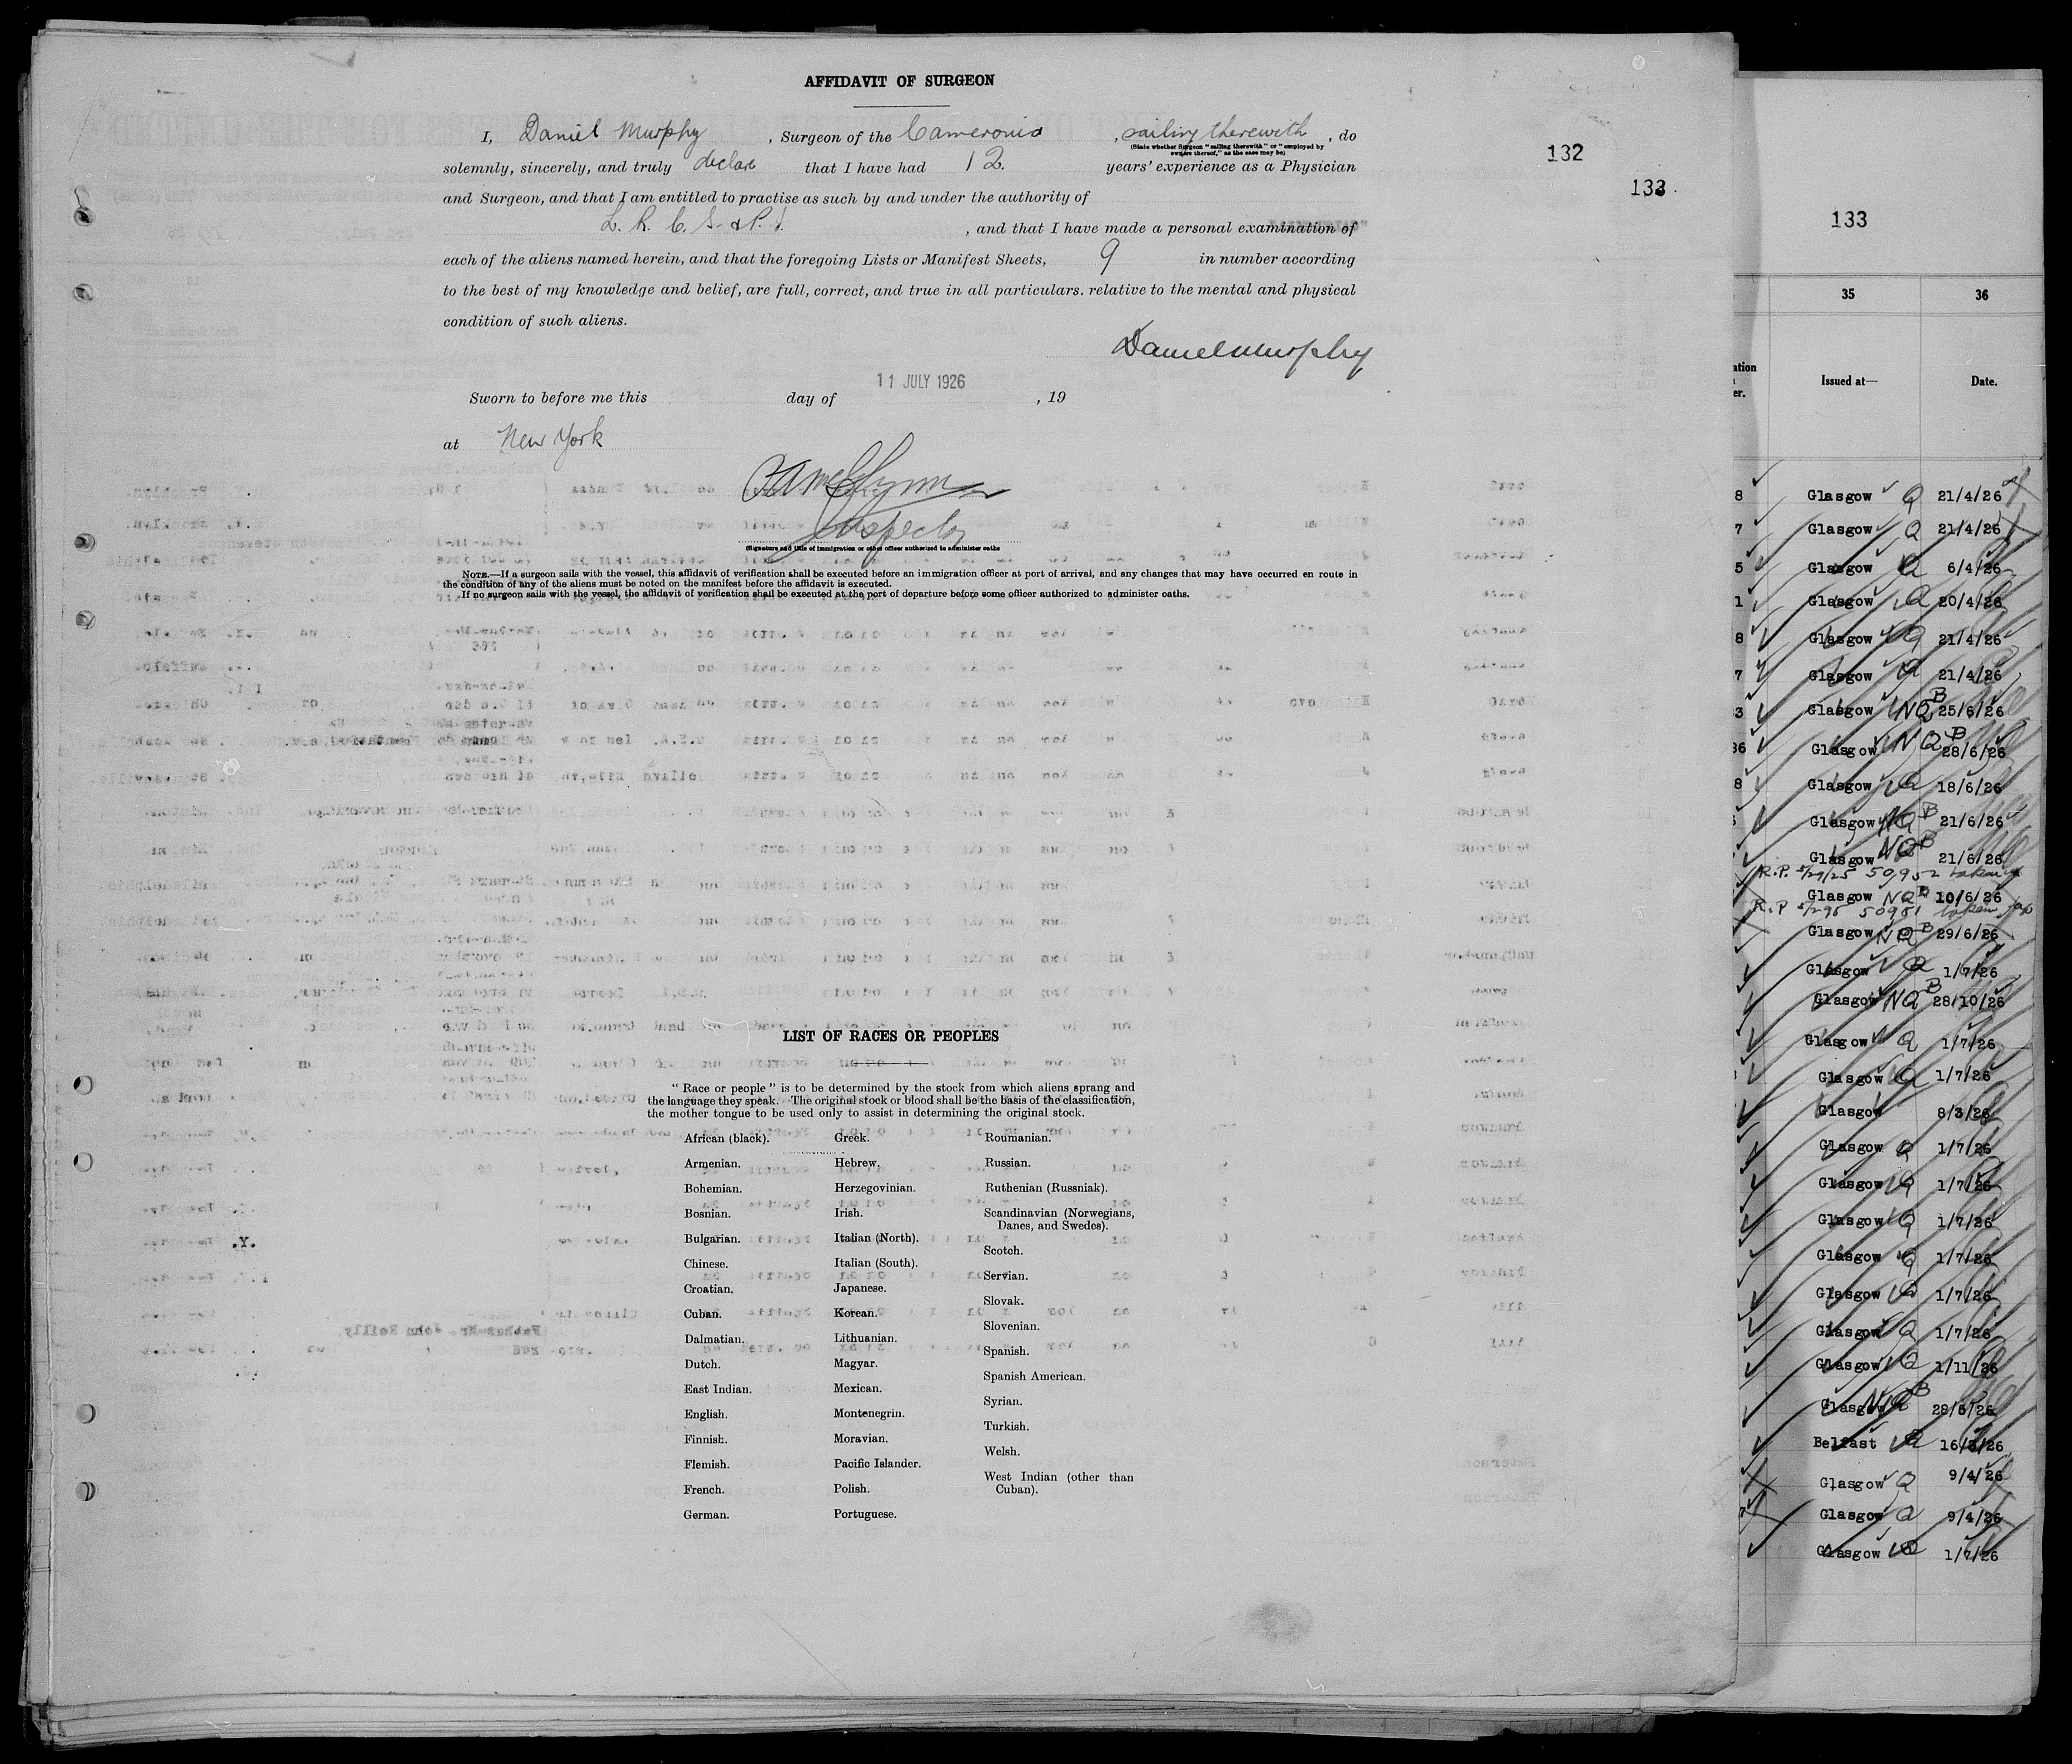 AFFIDAVIT OF SURGEON
I, Daniel Murphy, Surgeon of the Cameronia, sailing therewith, do
(State whether Surgeon "sailing therewith" or "employed by
owners thereof," as the case may be)
solemnly, sincerely, and truly declare that I have had 12. years' experience as a Physician
and Surgeon, and that I am entitled to practise as such by and under the authority of
L. R. C. S. & P. I. , and that I have made a personal examination of
each of the aliens named herein, and that the foregoing Lists or Manifest Sheets, 9 in number according
to the best of my knowledge and belief, are full, correct, and true in all particulars. relative to the mental and physical
condition of such aliens.
Daniel Murphy
11 JULY 1926
Sworn to before me this day of , 19
at New York
Inspector
(Signature and title of immigration or other officer authorized to administer oaths
NOTE.—If a surgeon sails with the vessel, this affidavit of verification shall be executed before an immigration officer at port of arrival, and any changes that may have occurred en route in
the condition of any of the aliens must be noted on the manifest before the affidavit is executed.
If no surgeon sails with the vessel, the affidavit of verification shall be executed at the port of departure before some officer authorized to administer oaths.
LIST OF RACES OR PEOPLES
"Race or people" is to be determined by the stock from which aliens sprang and
the language they speak. The original stock or blood shall be the basis of the classification,
the mother tongue to be used only to assist in determining the original stock.
African (black).
Armenian.
Bohemian.
Bosnian.
Bulgarian.
Chinese.
Croatian.
Cuban.
Dalmatian.
Dutch.
East Indian.
English.
Finnish.
Flemish.
French.
German.
Greek.
Hebrew.
Herzegovinian.
Irish.
Italian (North).
Italian (South).
Japanese.
Korean.
Lithuanian.
Magyar.
Mexican.
Montenegrin.
Moravian.
Pacific Islander.
Polish.
Portuguese.
Roumanian.
Russian.
Ruthenian (Russniak).
Scandinavian (Norwegians,
Danes, and Swedes).
Scotch.
Servian.
Slovak.
Slovenian.
Spanish.
Spanish American.
Syrian.
Turkish.
Welsh.
West Indian (other than
Cuban).
132
133
133
35 36
Issued at— Date.
8 Glasgow Q 21/4/26
7 Glasgow Q 21/4/26
5 Glasgow Q 6/4/26
1 Glasgow Q 20/4/26
8 Glasgow Q 21/4/26
7 Glasgow Q 21/4/26
3 Glasgow NQB 25/6/26
36 Glasgow NQB 28/6/26
8 Glasgow Q 18/6/26
Glasgow NQB 21/6/26
Glasgow NQB 21/6/26
R.P. 50952 taken
Glasgow NQB 10/6/26
R.P 50951 taken
Glasgow NQB 29/6/26
Glasgow Q 1/7/26
Glasgow NQB 28/10/26
Glasgow Q 1/7/26
Glasgow Q 1/7/26
Glasgow 8/3/26
Glasgow Q 1/7/26
Glasgow Q 1/7/26
Glasgow Q 1/7/26
Glasgow Q 1/7/26
Glasgow Q 1/7/26
Glasgow Q 1/7/26
Glasgow Q 1/11/26
Glasgow NQB 28/6/26
Belfast Q 16/3/26
Glasgow Q 9/4/26
Glasgow Q 9/4/26
Glasgow Q 1/7/26